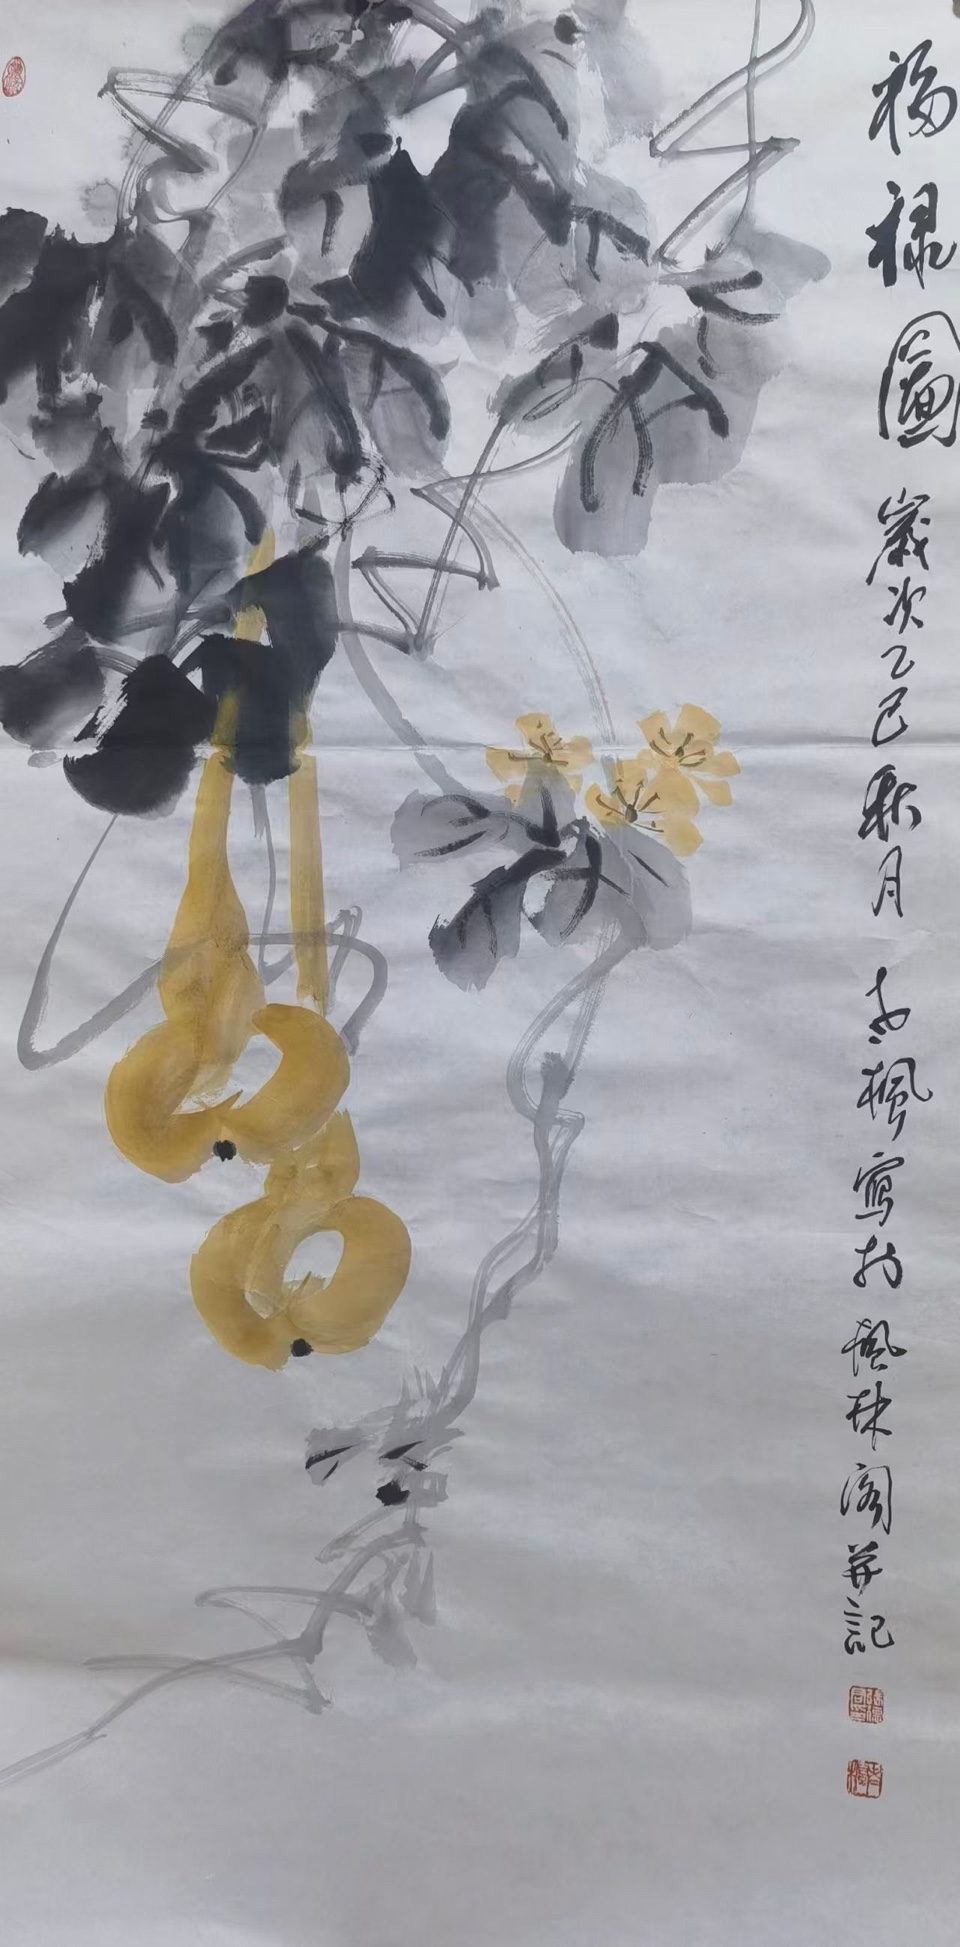 福禄圖 歲次乙巳秋月 楓寫於楓林閣並記